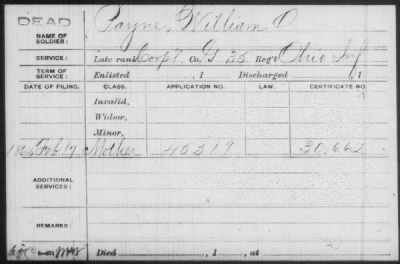 DEAD
NAME OF SOLDIER: Payne, William O
SERVICE: Late rank Corp'l Co. G 36 Reg't Ohio Inf
TERM OF SERVICE: Enlisted , 1 Discharged , 1
DATE OF FILING. CLASS. APPLICATION NO. LAW. CERTIFICATE NO.
Invalid,
Widow,
Minor,
Feb 17 Mother 30,662
ADDITIONAL SERVICES:
REMARKS:
Died , 1 , at